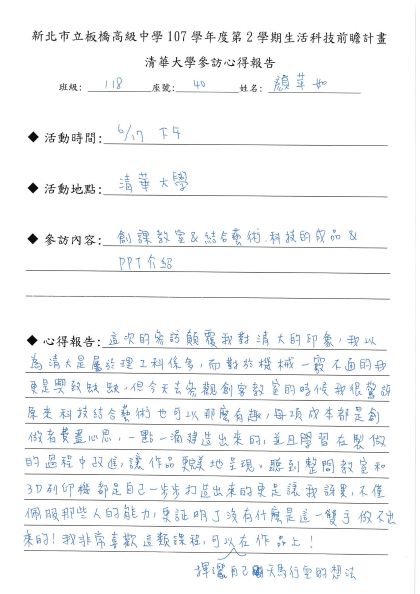 新北市立板橋高級中學 107 學年度第 2 學期生活科技前瞻計畫
清華大學參訪心得報告
班級: 118 座號: 40 姓名: 顏苹如
◆ 活動時間: 6/17 下午
◆ 活動地點: 清華大學
◆ 參訪內容: 創課教室 & 結合藝術、科技的成品 &
PPT介紹
◆ 心得報告: 這次的參訪顛覆我對清大的印象,我以
為清大是屬於理工科係多,而對於機械一竅不通的我
更是興致缺缺,但今天去參觀創客教室的時候我很驚訝
原來科技結合藝術也可以那麼有趣,每項成本都是創
做者費盡心思,一點一滴建造出來的,並且學習在製做
的過程中改進,讓作品更美地呈現。聽到整間教室和
3D列印機都是自己一步步打造出來的更是讓我訝異,不僅
佩服那些人的能力,更証明了沒有什麼是這一雙手做不出
來的!我非常喜歡這類課程,可以在作品上!
揮灑自己天馬行空的想法